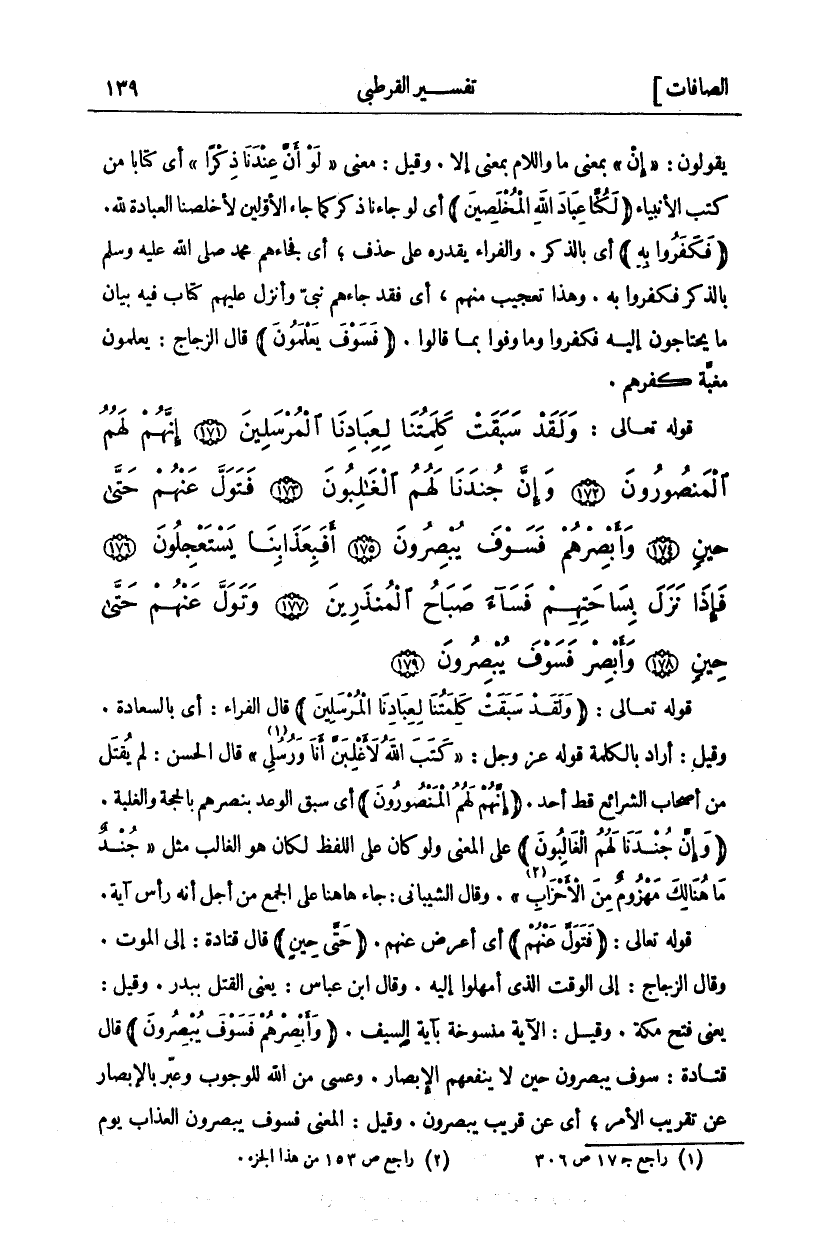 الصافات] تفسـير القرطبى ١٣٩
يقولون : « إنْ » بمعنى ما واللام بمعنى إلا . وقيل : معنى « لَوْ أَنَّ عِنْدَنَا ذِكْرًا » أى كتابا من
كتب الأنبياء ﴿ لَكُنَّا عِبَادَ اللهِ الْمُخْلَصِينَ ﴾ أى لو جاءنا ذكر كما جاء الأولين لأخلصنا العبادة لله.
﴿ فَكَفَرُوا بِهِ ﴾ أى بالذكر . والفراء يقدره على حذف ؛ أى فجاءهم محمد صلى الله عليه وسلم
بالذكر فكفروا به . وهذا تعجيب منهم ، أى فقد جاءهم نبىّ وأنزل عليهم كتاب فيه بيان
ما يحتاجون إليـه فكفروا وما وفوا بمـا قالوا . ﴿ فَسَوْفَ يَعْلَمُونَ ﴾ قال الزجاج : يعلمون
مغبَّة كفرهم .
قوله تعـالى : وَلَقَدْ سَبَقَتْ كَلِمَتُنَا لِعِبَادِنَا ٱلْمُرْسَلِينَ ﴿١٧١﴾ إِنَّهُمْ لَهُمُ
ٱلْمَنصُورُونَ ﴿١٧٢﴾ وَإِنَّ جُندَنَا لَهُمُ ٱلْغَٰلِبُونَ ﴿١٧٣﴾ فَتَوَلَّ عَنْهُمْ حَتَّىٰ
حِينٍ ﴿١٧٤﴾ وَأَبْصِرْهُمْ فَسَـوْفَ يُبْصِرُونَ ﴿١٧٥﴾ أَفَبِعَذَابِنَـا يَسْتَعْجِلُونَ ﴿١٧٦﴾
فَإِذَا نَزَلَ بِسَاحَتِهِـمْ فَسَآءَ صَبَاحُ ٱلْمُنذَرِينَ ﴿١٧٧﴾ وَتَوَلَّ عَنْهُـمْ حَتَّىٰ
حِينٍ ﴿١٧٨﴾ وَأَبْصِرْ فَسَوْفَ يُبْصِرُونَ ﴿١٧٩﴾
قوله تعـالى : ﴿ وَلَقَـدْ سَبَقَتْ كَلِمَتُنَا لِعِبَادِنَا الْمُرْسَلِينَ ﴾ قال الفراء : أى بالسعادة .
وقيل : أراد بالكلمة قوله عز وجل : « كَتَبَ اللهُ لَأَغْلِبَنَّ أَنَا وَرُسُلِي »(١) قال الحسن : لم يُقتَل
من أصحاب الشرائع قط أحد . ﴿ إِنَّهُمْ لَهُمُ الْمَنْصُورُونَ ﴾ أى سبق الوعد بنصرهم بالحجة والغلبة .
﴿ وَإِنَّ جُنْـدَنَا لَهُمُ الْغَالِبُونَ ﴾ على المعنى ولو كان على اللفظ لكان هو الغالب مثل « جُنْـدٌ
مَا هُنَالِكَ مَهْزُومٌ مِنَ الْأَحْزَابِ »(٢) . وقال الشيبانى : جاء هاهنا على الجمع من أجل أنه رأس آية.
قوله تعالى : ﴿ فَتَوَلَّ عَنْهُمْ ﴾ أى أعرض عنهم . ﴿ حَتَّى حِينٍ ﴾ قال قتادة : إلى الموت .
وقال الزجاج : إلى الوقت الذى أمهلوا إليه . وقال ابن عباس : يعنى القتل ببدر . وقيل :
يعنى فتح مكة . وقيـل : الآية منسوخة بآية السيف . ﴿ وَأَبْصِرْهُمْ فَسَوْفَ يُبْصِرُونَ ﴾ قال
قتـادة : سوف يبصرون حين لا ينفعهم الإبصار . وعسى من الله للوجوب وعبّر بالإبصار
عن تقريب الأمر ؛ أى عن قريب يبصرون . وقيل : المعنى فسوف يبصرون العذاب يوم
(١) راجع جـ ١٧ ص ٣٠٦ (٢) راجع ص ١٥٣ من هذا الجزء .